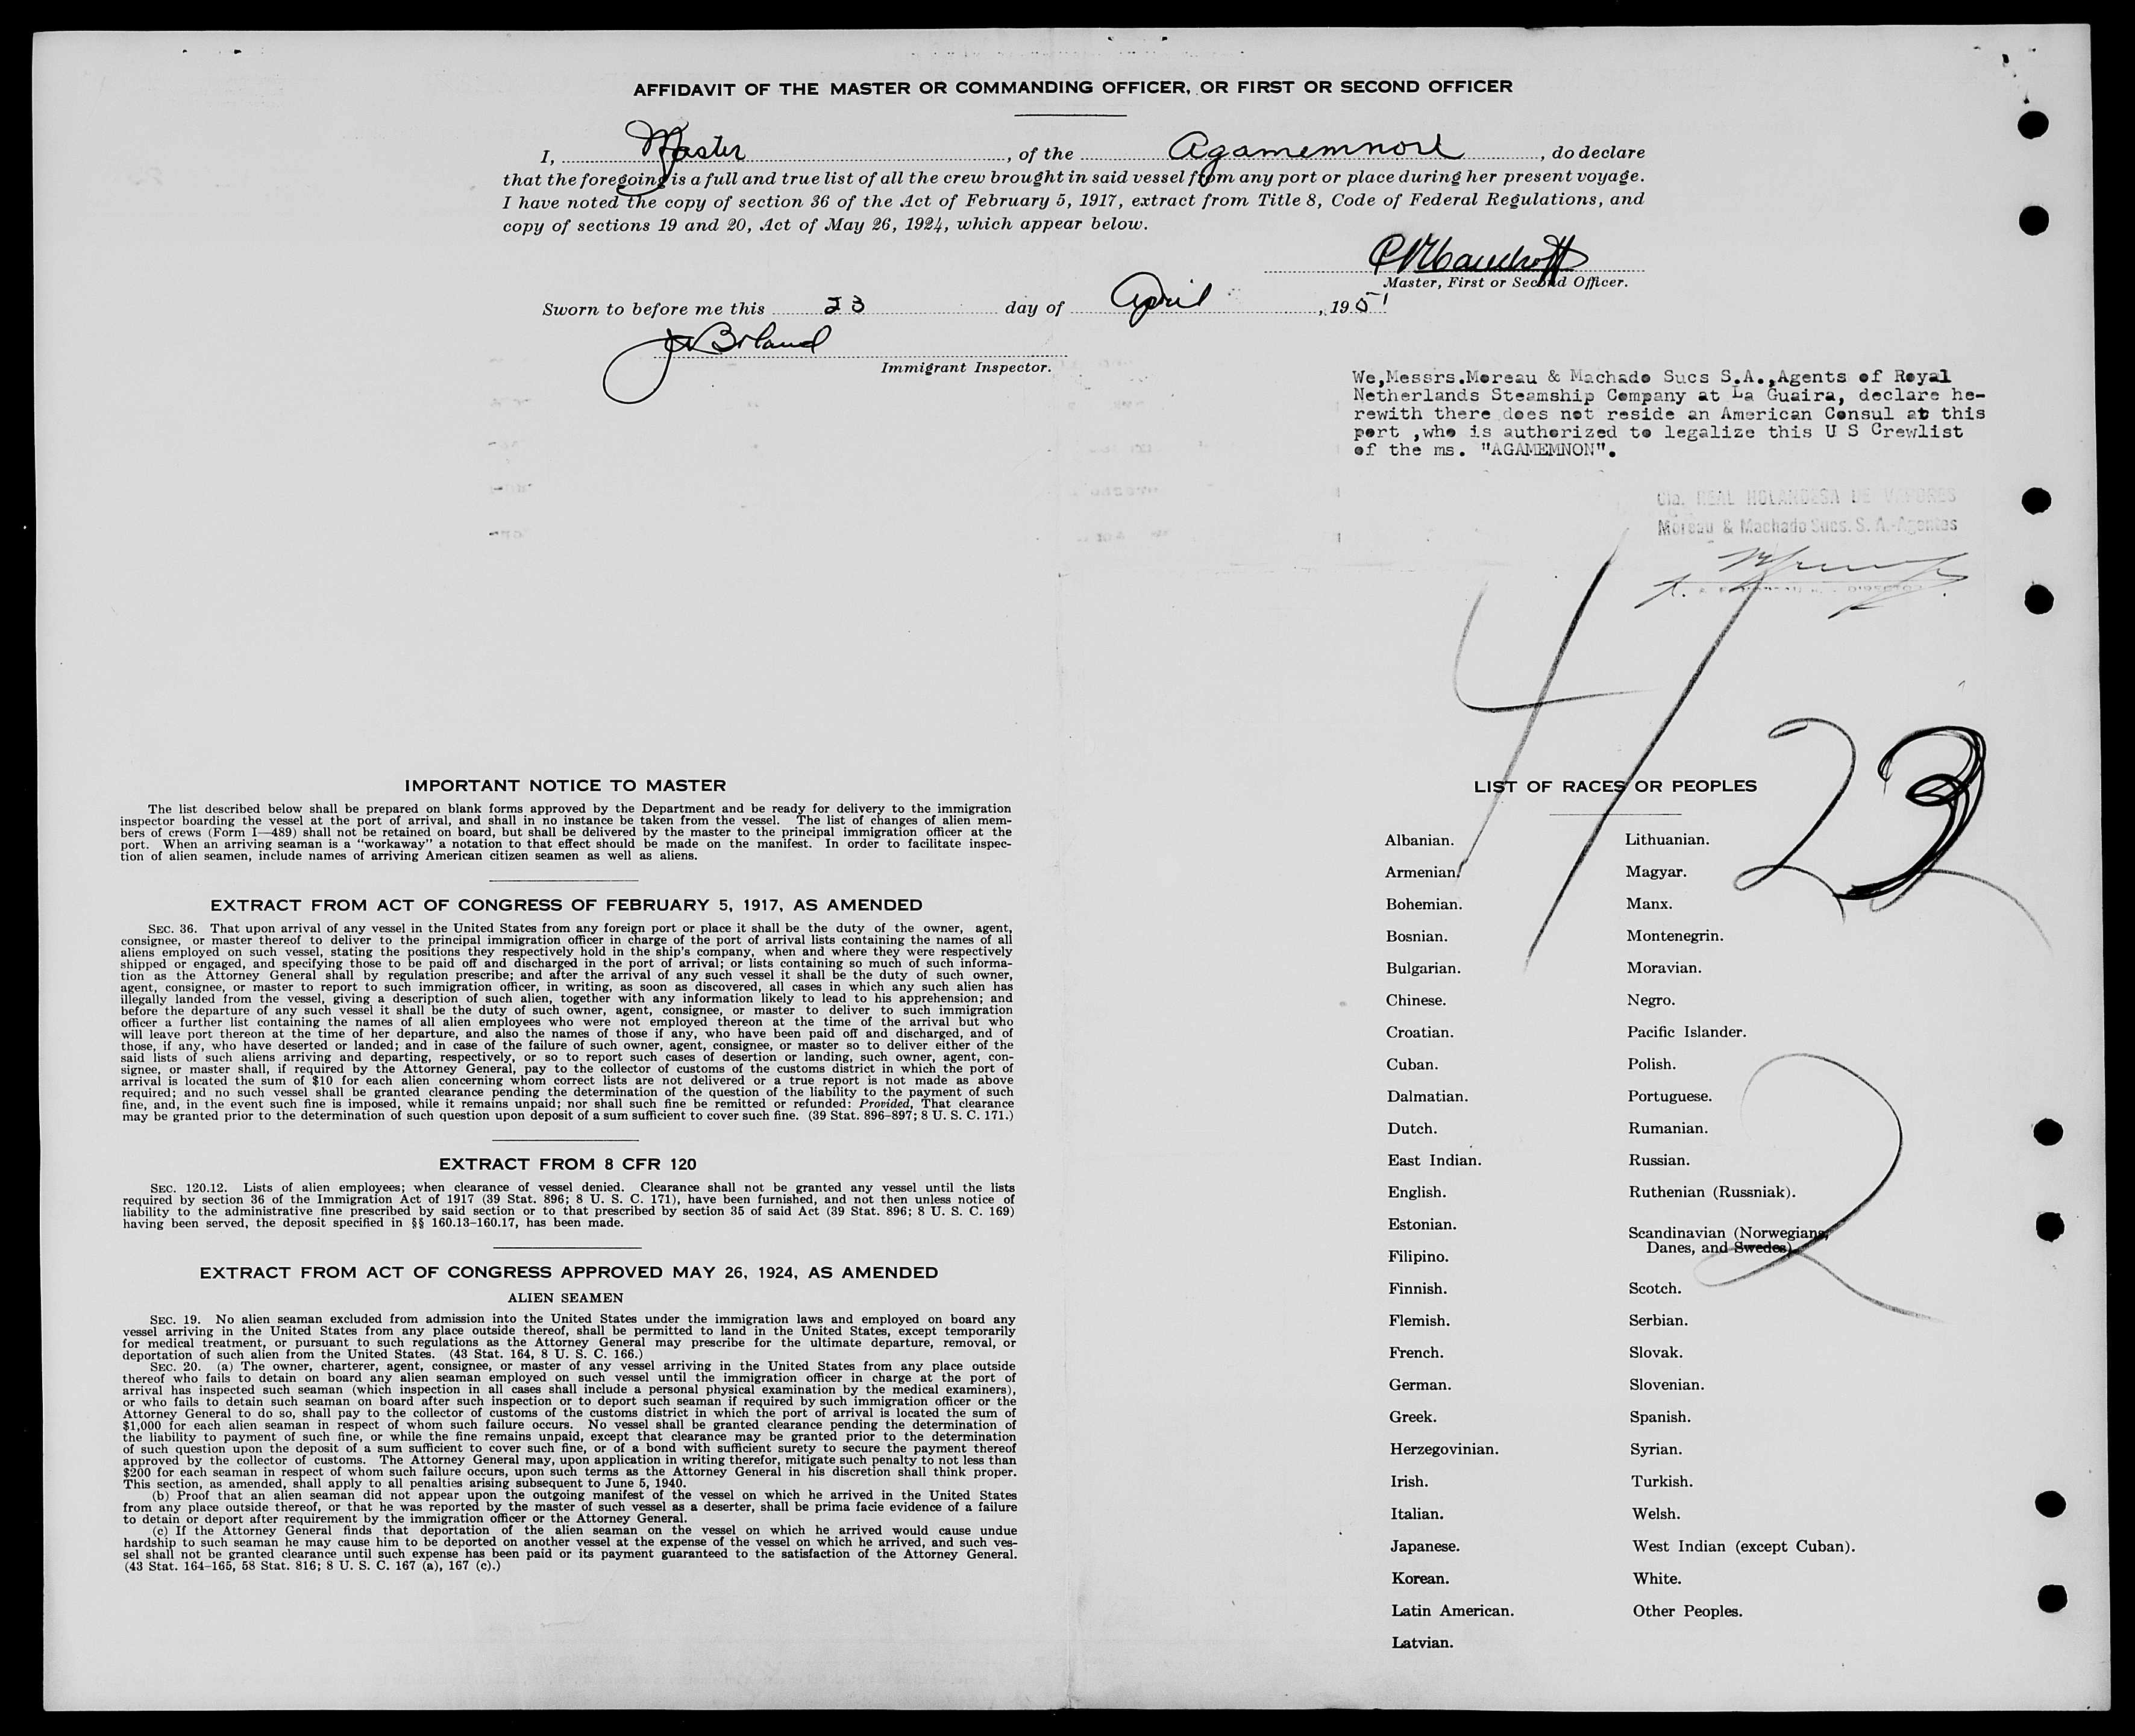 AFFIDAVIT OF THE MASTER OR COMMANDING OFFICER, OR FIRST OR SECOND OFFICER
I, Master, of the Agamemnon, do declare
that the foregoing is a full and true list of all the crew brought in said vessel from any port or place during her present voyage.
I have noted the copy of section 36 of the Act of February 5, 1917, extract from Title 8, Code of Federal Regulations, and
copy of sections 19 and 20, Act of May 26, 1924, which appear below.
Master, First or Second Officer.
Sworn to before me this 23 day of April, 1951
Immigrant Inspector.
We,Messrs.Moreau & Machado Sucs S.A.,Agents of Royal
Netherlands Steamship Company at La Guaira, declare he-
rewith there does not reside an American Consul at this
port ,who is authorized to legalize this U S Crewlist
of the ms. "AGAMEMNON".
Cia. REAL HOLANDESA DE VAPORES
Moreau & Machado Sucs. S. A.-Agentes
4/23
2
IMPORTANT NOTICE TO MASTER
The list described below shall be prepared on blank forms approved by the Department and be ready for delivery to the immigration
inspector boarding the vessel at the port of arrival, and shall in no instance be taken from the vessel. The list of changes of alien mem-
bers of crews (Form I—489) shall not be retained on board, but shall be delivered by the master to the principal immigration officer at the
port. When an arriving seaman is a "workaway" a notation to that effect should be made on the manifest. In order to facilitate inspec-
tion of alien seamen, include names of arriving American citizen seamen as well as aliens.
EXTRACT FROM ACT OF CONGRESS OF FEBRUARY 5, 1917, AS AMENDED
SEC. 36. That upon arrival of any vessel in the United States from any foreign port or place it shall be the duty of the owner, agent,
consignee, or master thereof to deliver to the principal immigration officer in charge of the port of arrival lists containing the names of all
aliens employed on such vessel, stating the positions they respectively hold in the ship's company, when and where they were respectively
shipped or engaged, and specifying those to be paid off and discharged in the port of arrival; or lists containing so much of such informa-
tion as the Attorney General shall by regulation prescribe; and after the arrival of any such vessel it shall be the duty of such owner,
agent, consignee, or master to report to such immigration officer, in writing, as soon as discovered, all cases in which any such alien has
illegally landed from the vessel, giving a description of such alien, together with any information likely to lead to his apprehension; and
before the departure of any such vessel it shall be the duty of such owner, agent, consignee, or master to deliver to such immigration
officer a further list containing the names of all alien employees who were not employed thereon at the time of the arrival but who
will leave port thereon at the time of her departure, and also the names of those if any, who have been paid off and discharged, and of
those, if any, who have deserted or landed; and in case of the failure of such owner, agent, consignee, or master so to deliver either of the
said lists of such aliens arriving and departing, respectively, or so to report such cases of desertion or landing, such owner, agent, con-
signee, or master shall, if required by the Attorney General, pay to the collector of customs of the customs district in which the port of
arrival is located the sum of $10 for each alien concerning whom correct lists are not delivered or a true report is not made as above
required; and no such vessel shall be granted clearance pending the determination of the question of the liability to the payment of such
fine, and, in the event such fine is imposed, while it remains unpaid; nor shall such fine be remitted or refunded: Provided, That clearance
may be granted prior to the determination of such question upon deposit of a sum sufficient to cover such fine. (39 Stat. 896–897; 8 U. S. C. 171.)
EXTRACT FROM 8 CFR 120
SEC. 120.12. Lists of alien employees; when clearance of vessel denied. Clearance shall not be granted any vessel until the lists
required by section 36 of the Immigration Act of 1917 (39 Stat. 896; 8 U. S. C. 171), have been furnished, and not then unless notice of
liability to the administrative fine prescribed by said section or to that prescribed by section 35 of said Act (39 Stat. 896; 8 U. S. C. 169)
having been served, the deposit specified in §§ 160.13–160.17, has been made.
EXTRACT FROM ACT OF CONGRESS APPROVED MAY 26, 1924, AS AMENDED
ALIEN SEAMEN
SEC. 19. No alien seaman excluded from admission into the United States under the immigration laws and employed on board any
vessel arriving in the United States from any place outside thereof, shall be permitted to land in the United States, except temporarily
for medical treatment, or pursuant to such regulations as the Attorney General may prescribe for the ultimate departure, removal, or
deportation of such alien from the United States. (43 Stat. 164, 8 U. S. C. 166.)
SEC. 20. (a) The owner, charterer, agent, consignee, or master of any vessel arriving in the United States from any place outside
thereof who fails to detain on board any alien seaman employed on such vessel until the immigration officer in charge at the port of
arrival has inspected such seaman (which inspection in all cases shall include a personal physical examination by the medical examiners),
or who fails to detain such seaman on board after such inspection or to deport such seaman if required by such immigration officer or the
Attorney General to do so, shall pay to the collector of customs of the customs district in which the port of arrival is located the sum of
$1,000 for each alien seaman in respect of whom such failure occurs. No vessel shall be granted clearance pending the determination of
the liability to payment of such fine, or while the fine remains unpaid, except that clearance may be granted prior to the determination
of such question upon the deposit of a sum sufficient to cover such fine, or of a bond with sufficient surety to secure the payment thereof
approved by the collector of customs. The Attorney General may, upon application in writing therefor, mitigate such penalty to not less than
$200 for each seaman in respect of whom such failure occurs, upon such terms as the Attorney General in his discretion shall think proper.
This section, as amended, shall apply to all penalties arising subsequent to June 5, 1940.
(b) Proof that an alien seaman did not appear upon the outgoing manifest of the vessel on which he arrived in the United States
from any place outside thereof, or that he was reported by the master of such vessel as a deserter, shall be prima facie evidence of a failure
to detain or deport after requirement by the immigration officer or the Attorney General.
(c) If the Attorney General finds that deportation of the alien seaman on the vessel on which he arrived would cause undue
hardship to such seaman he may cause him to be deported on another vessel at the expense of the vessel on which he arrived, and such ves-
sel shall not be granted clearance until such expense has been paid or its payment guaranteed to the satisfaction of the Attorney General.
(43 Stat. 164–165, 58 Stat. 816; 8 U. S. C. 167 (a), 167 (c).)
LIST OF RACES OR PEOPLES
Albanian.
Armenian.
Bohemian.
Bosnian.
Bulgarian.
Chinese.
Croatian.
Cuban.
Dalmatian.
Dutch.
East Indian.
English.
Estonian.
Filipino.
Finnish.
Flemish.
French.
German.
Greek.
Herzegovinian.
Irish.
Italian.
Japanese.
Korean.
Latin American.
Latvian.
Lithuanian.
Magyar.
Manx.
Montenegrin.
Moravian.
Negro.
Pacific Islander.
Polish.
Portuguese.
Rumanian.
Russian.
Ruthenian (Russniak).
Scandinavian (Norwegians,
Danes, and Swedes).
Scotch.
Serbian.
Slovak.
Slovenian.
Spanish.
Syrian.
Turkish.
Welsh.
West Indian (except Cuban).
White.
Other Peoples.